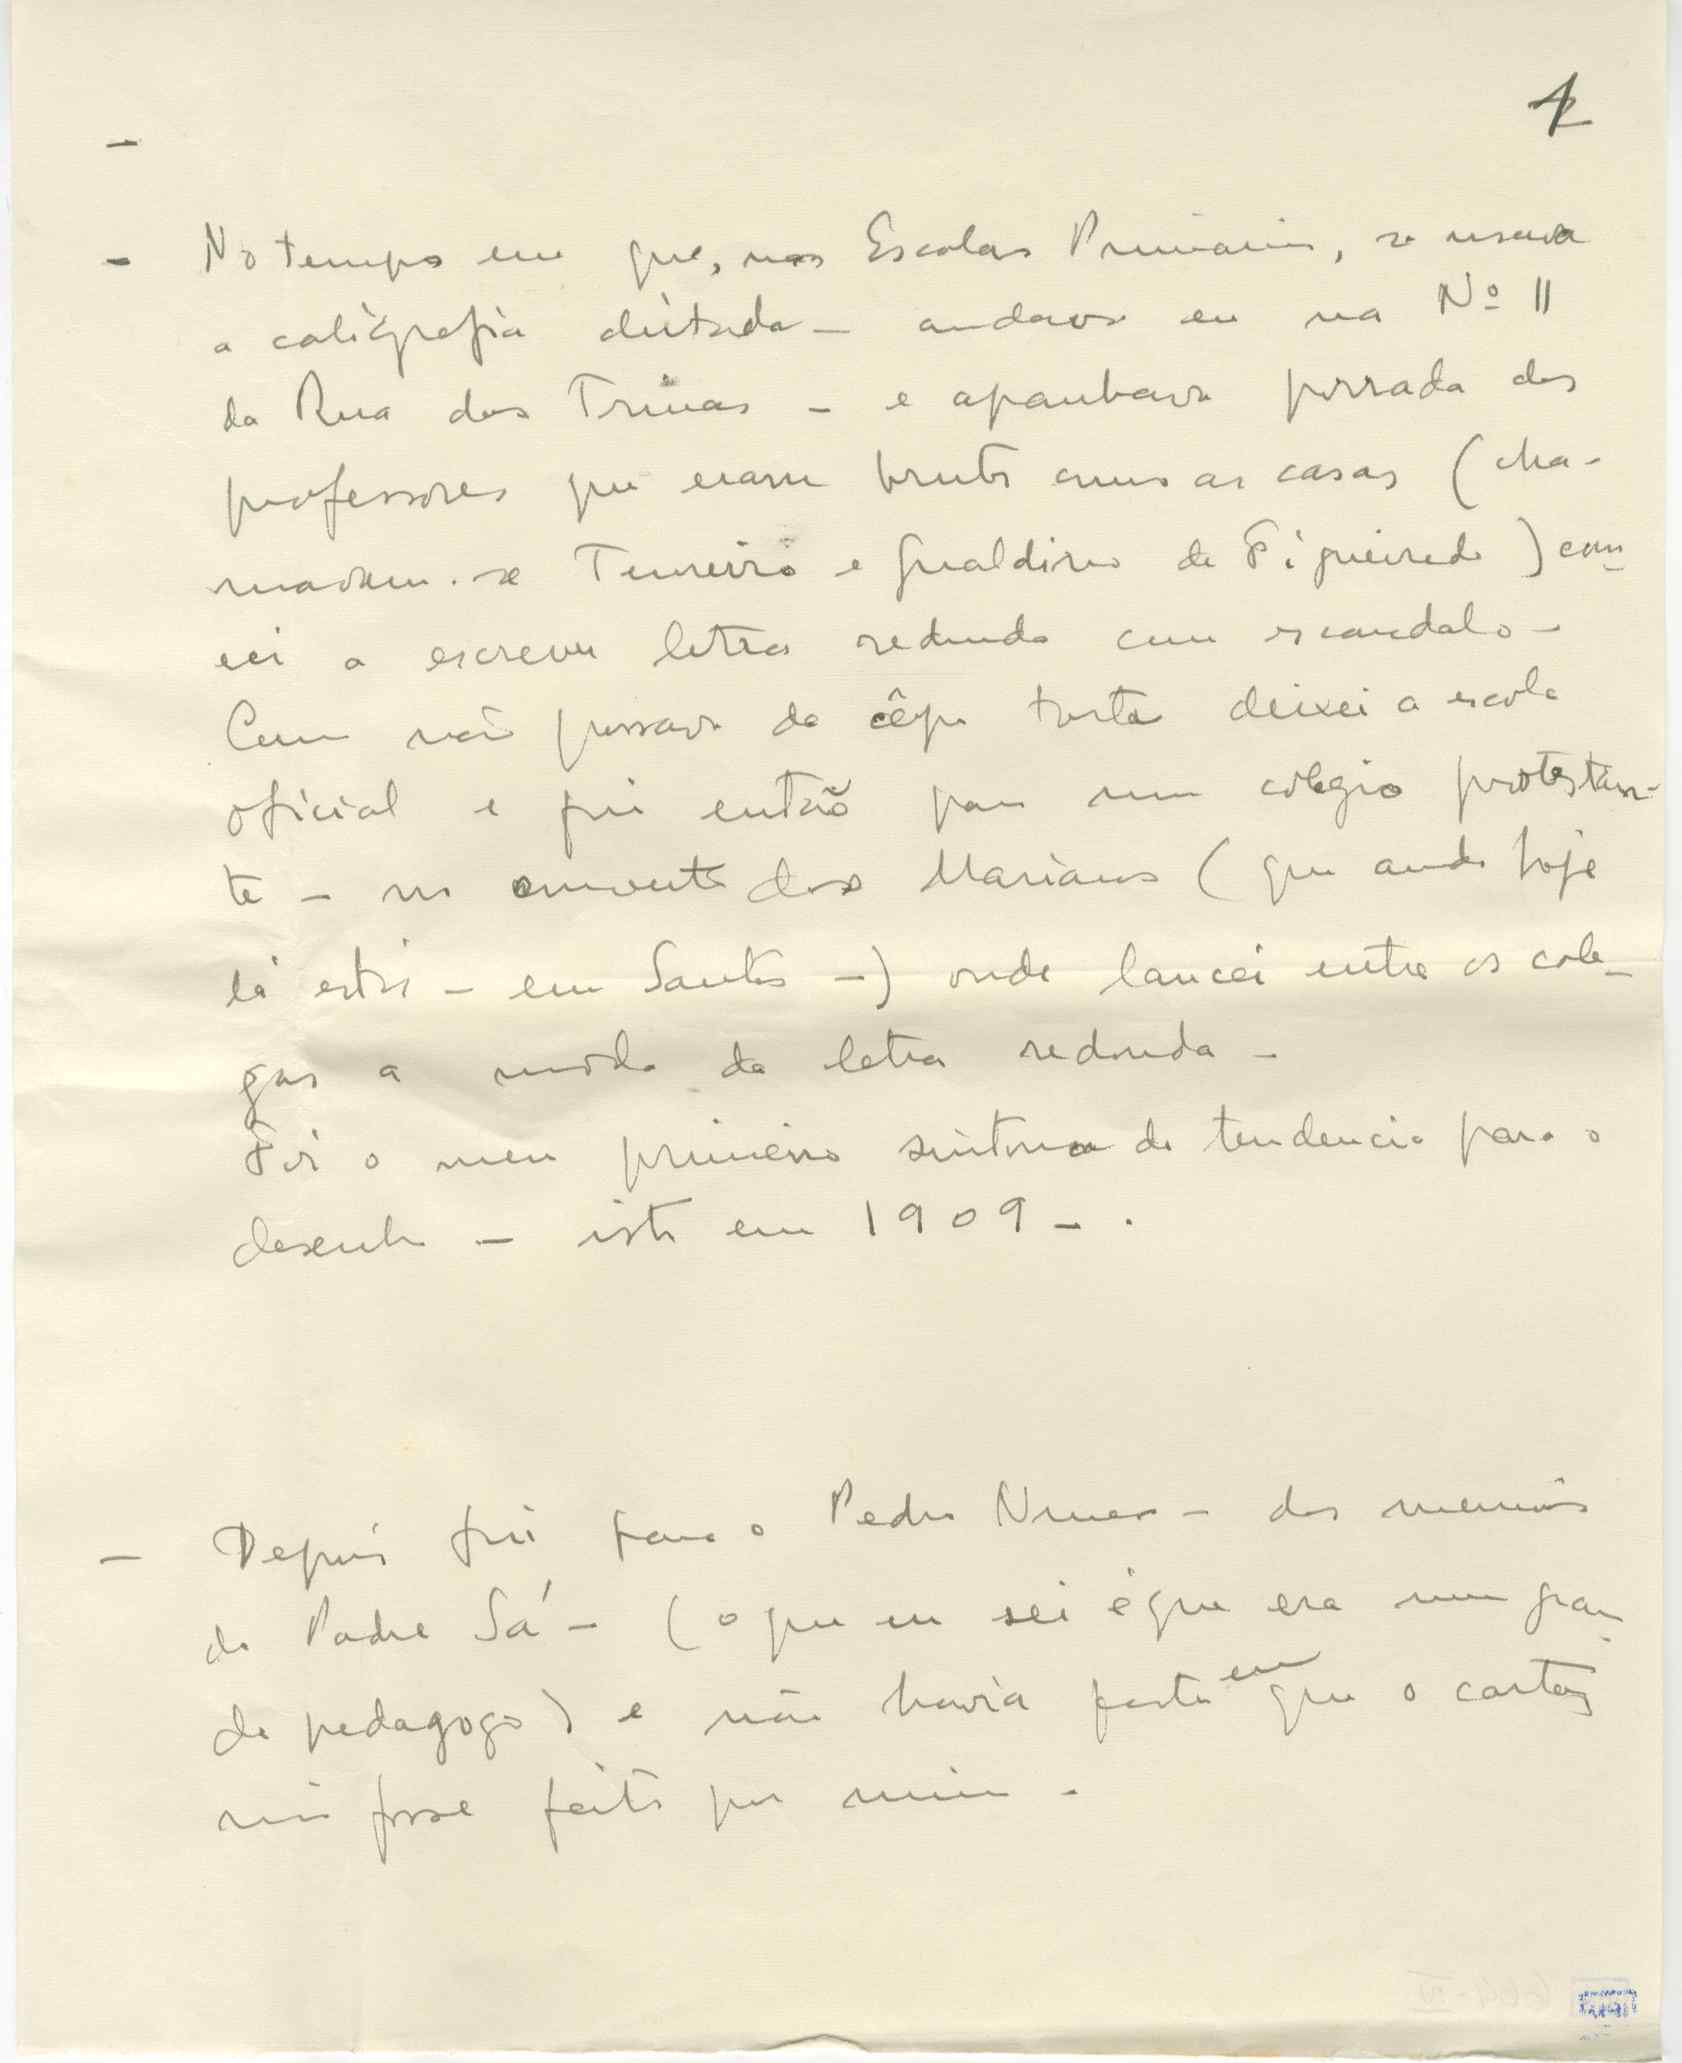 -
- No tempo em que, nas Escolas Primarias, se usava
a caligrafia deitada - andava eu na Nº 11
da Rua das Trinas - e apanhava porrada dos
professores que eram brutos como as casas (cha-
mavam-se Tenreiro e Gualdino de Figueiredo) com-
ecei a escrever letra redonda com escandalo -
Como não passava da cêpa torta deixei a escola
oficial e fui então para um colegio protestan-
te - no convento dos Marianos (que ainda hoje
lá está - em Santos -) onde lancei entre os cole-
gas a moda da letra redonda -
Foi o meu primeiro sintoma de tendencia para o
desenho - isto em 1909 - .
- Depois fui para o Pedro Nunes - dos meninos
do Padre Sá - (o que eu sei é que era um gran-
de pedagogo) e não havia festa em que o cartaz
não fosse feito por mim -